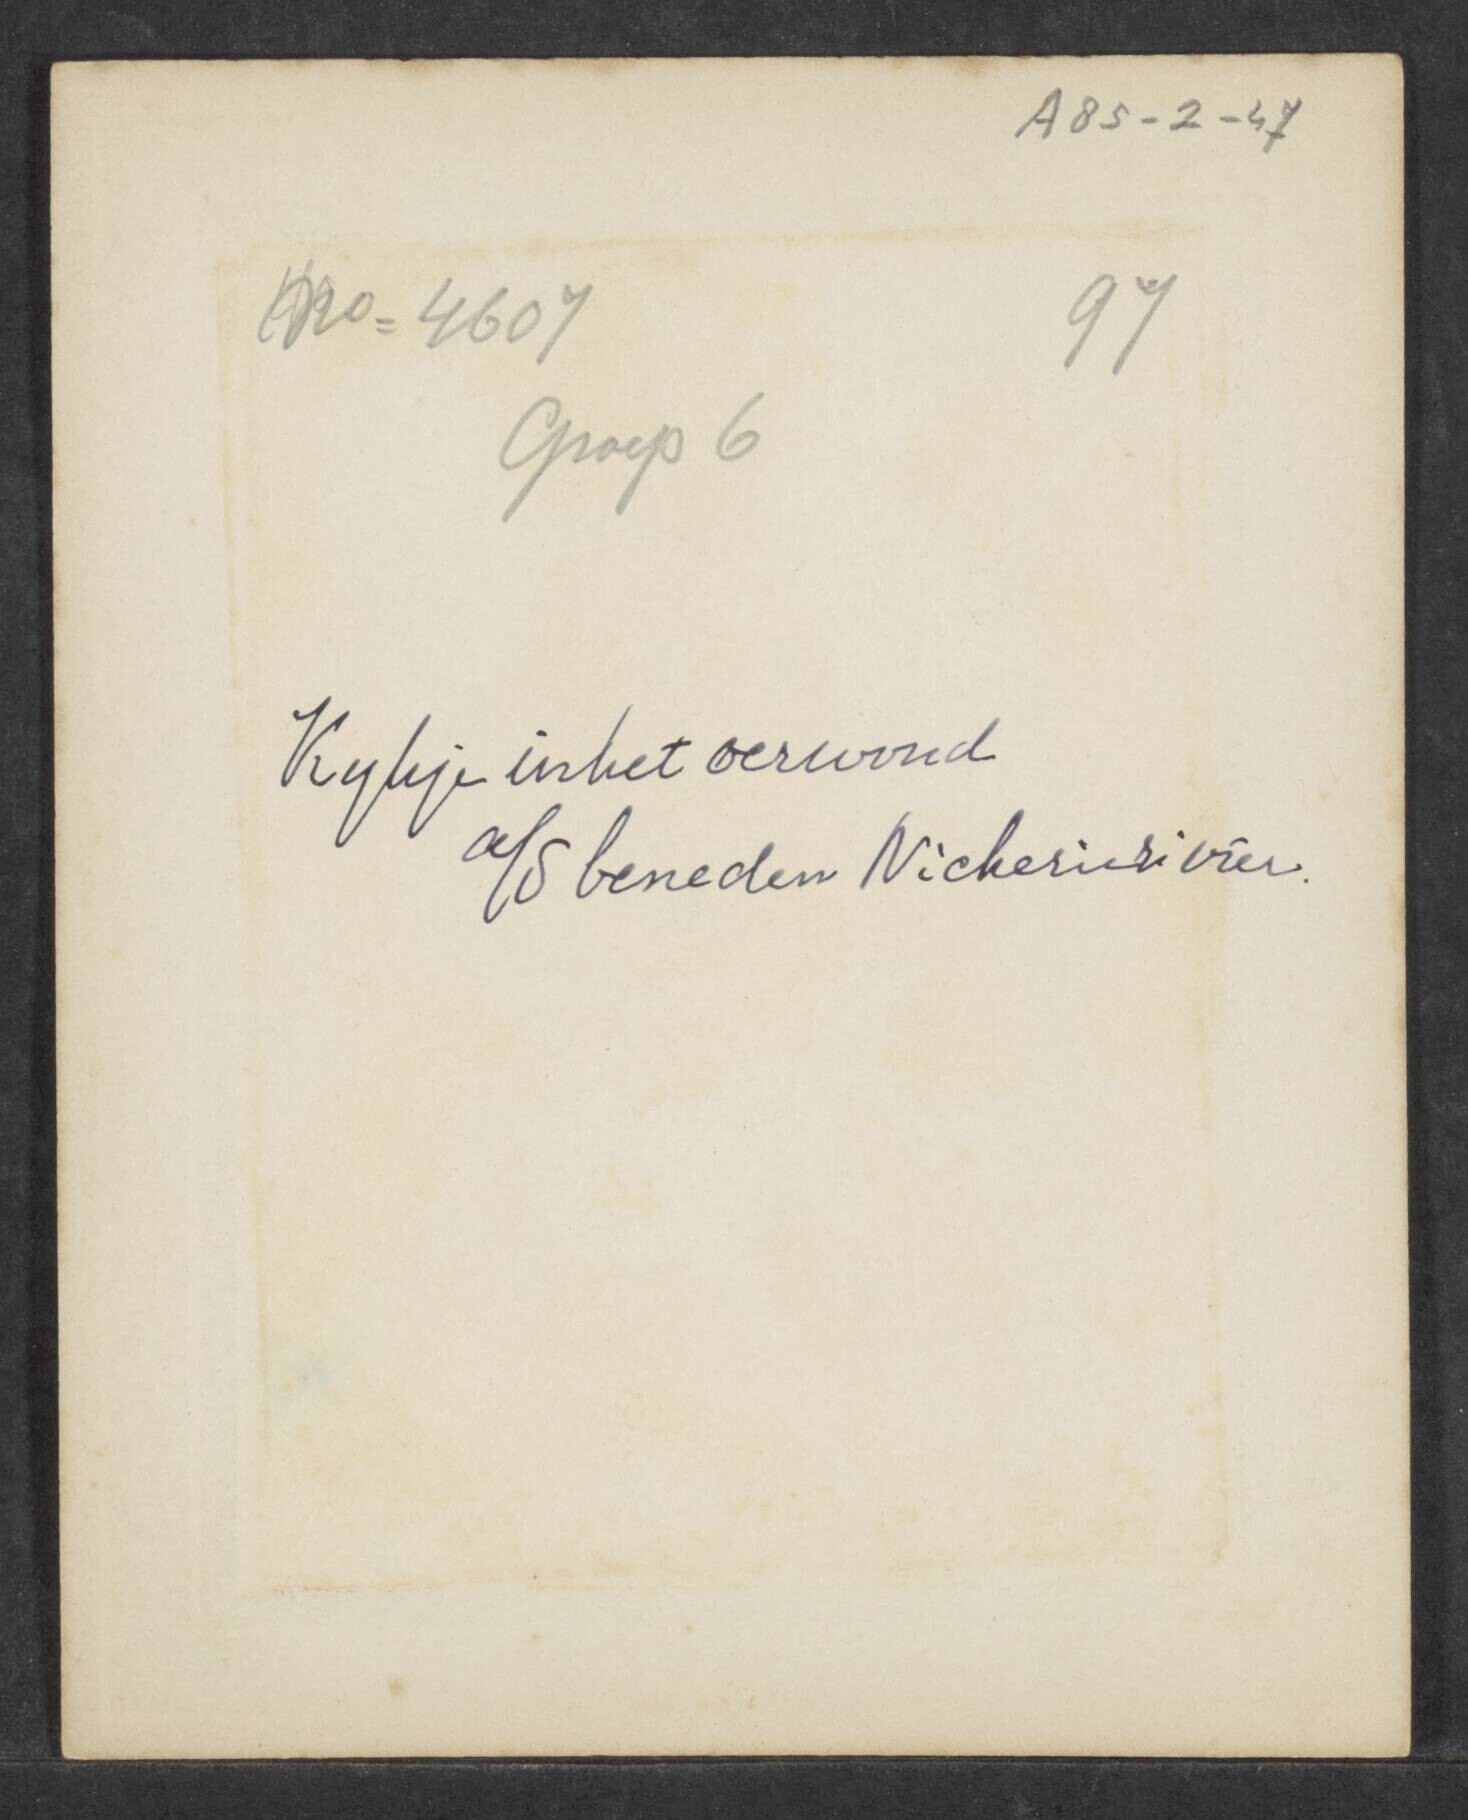 A85-2-47
No= 4607
97
Groep 6
Kykje in het oerwoud
a/d beneden Nickerierivier.